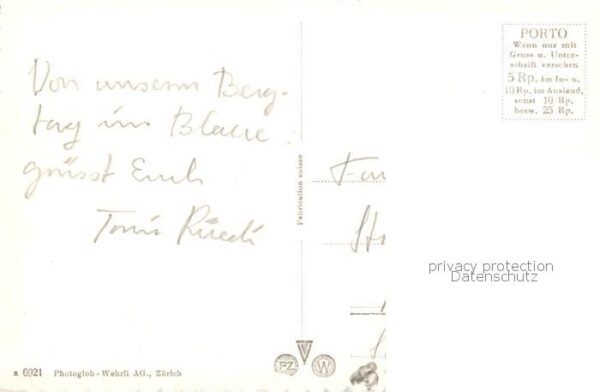 PORTO
Wenn nur mit
Gruss u. Unter-
schrift versehen
5 Rp. im In- u.
10 Rp. im Ausland,
sonst 10 Rp.
bezw. 25 Rp.
Von unserm Berg-
tag ins Blaue
grüsst Euch
Toni Rüedi
Fabrication suisse
Fa
St
privacy protection
Datenschutz
n 6921 Photoglob-Wehrli AG., Zürich
PZ W